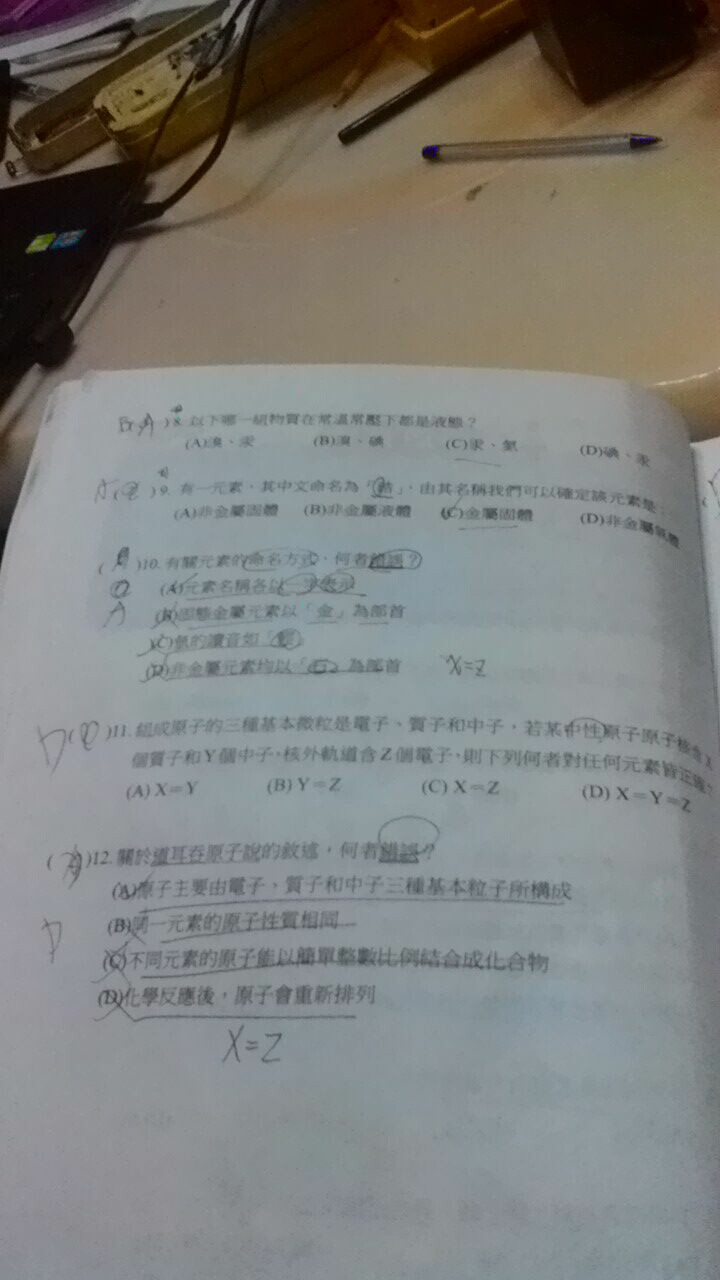 8. 以下哪一組物質在常溫常壓下都是液態？
(A)溴、汞 (B)溴、碘 (C)汞、氫 (D)碘、汞
9. 有一元素，其中文命名為「鋯」，由其名稱我們可以確定該元素是：
(A)非金屬固體 (B)非金屬液體 (C)金屬固體 (D)非金屬氣體
10. 有關元素的命名方式，何者錯誤？
(A)元素名稱各以一字表示
(B)固態金屬元素以「金」為部首
(C)氬的讀音如「
(D)非金屬元素均以「石」為部首 X=Z
11. 組成原子的三種基本微粒是電子、質子和中子，若某中性原子原子核含X
個質子和Y個中子，核外軌道含Z個電子，則下列何者對任何元素皆正確？
(A) X=Y (B) Y=Z (C) X=Z (D) X=Y=Z
12. 關於道耳吞原子說的敘述，何者錯誤？
(A)原子主要由電子、質子和中子三種基本粒子所構成
(B)同一元素的原子性質相同
(C)不同元素的原子能以簡單整數比例結合成化合物
(D)化學反應後，原子會重新排列
X=Z